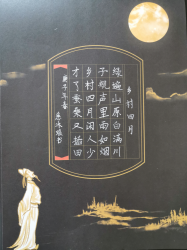 乡村四月
绿遍山原白满川
子规声里雨如烟
乡村四月闲人少
才了蚕桑又插田
庚子年春
书